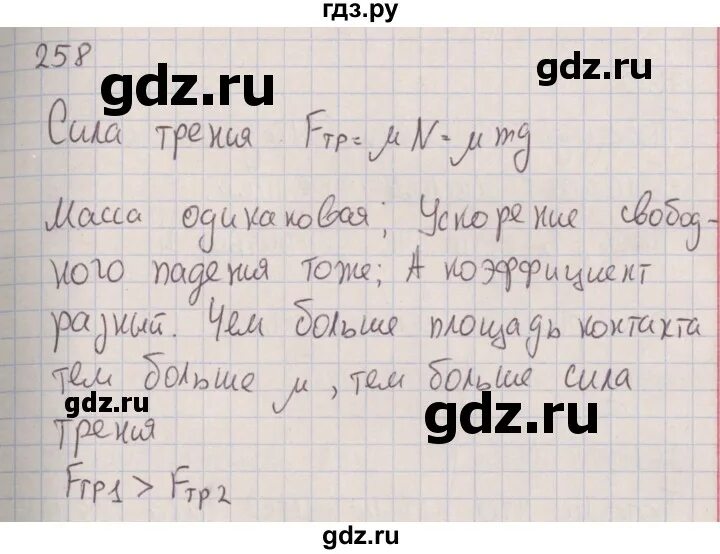 гдз.ру
258
gdz.ru
gdz.ru
Сила трения Fтр = μN = μmg
Масса одикаковая; Ускорение свобод-
ного падения тоже; А коэффициент
разный. Чем больше площадь контакта
тем больше μ, тем больше сила
gdz.ru
gdz.ru
трения
Fтр1 > Fтр2
gdz.ru